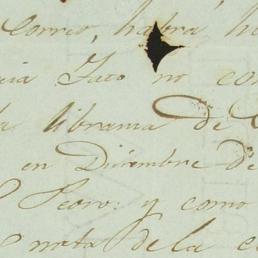 Correo, habra
no co
libranza de
en Diciembre de
Pedro: y como
nota de la c